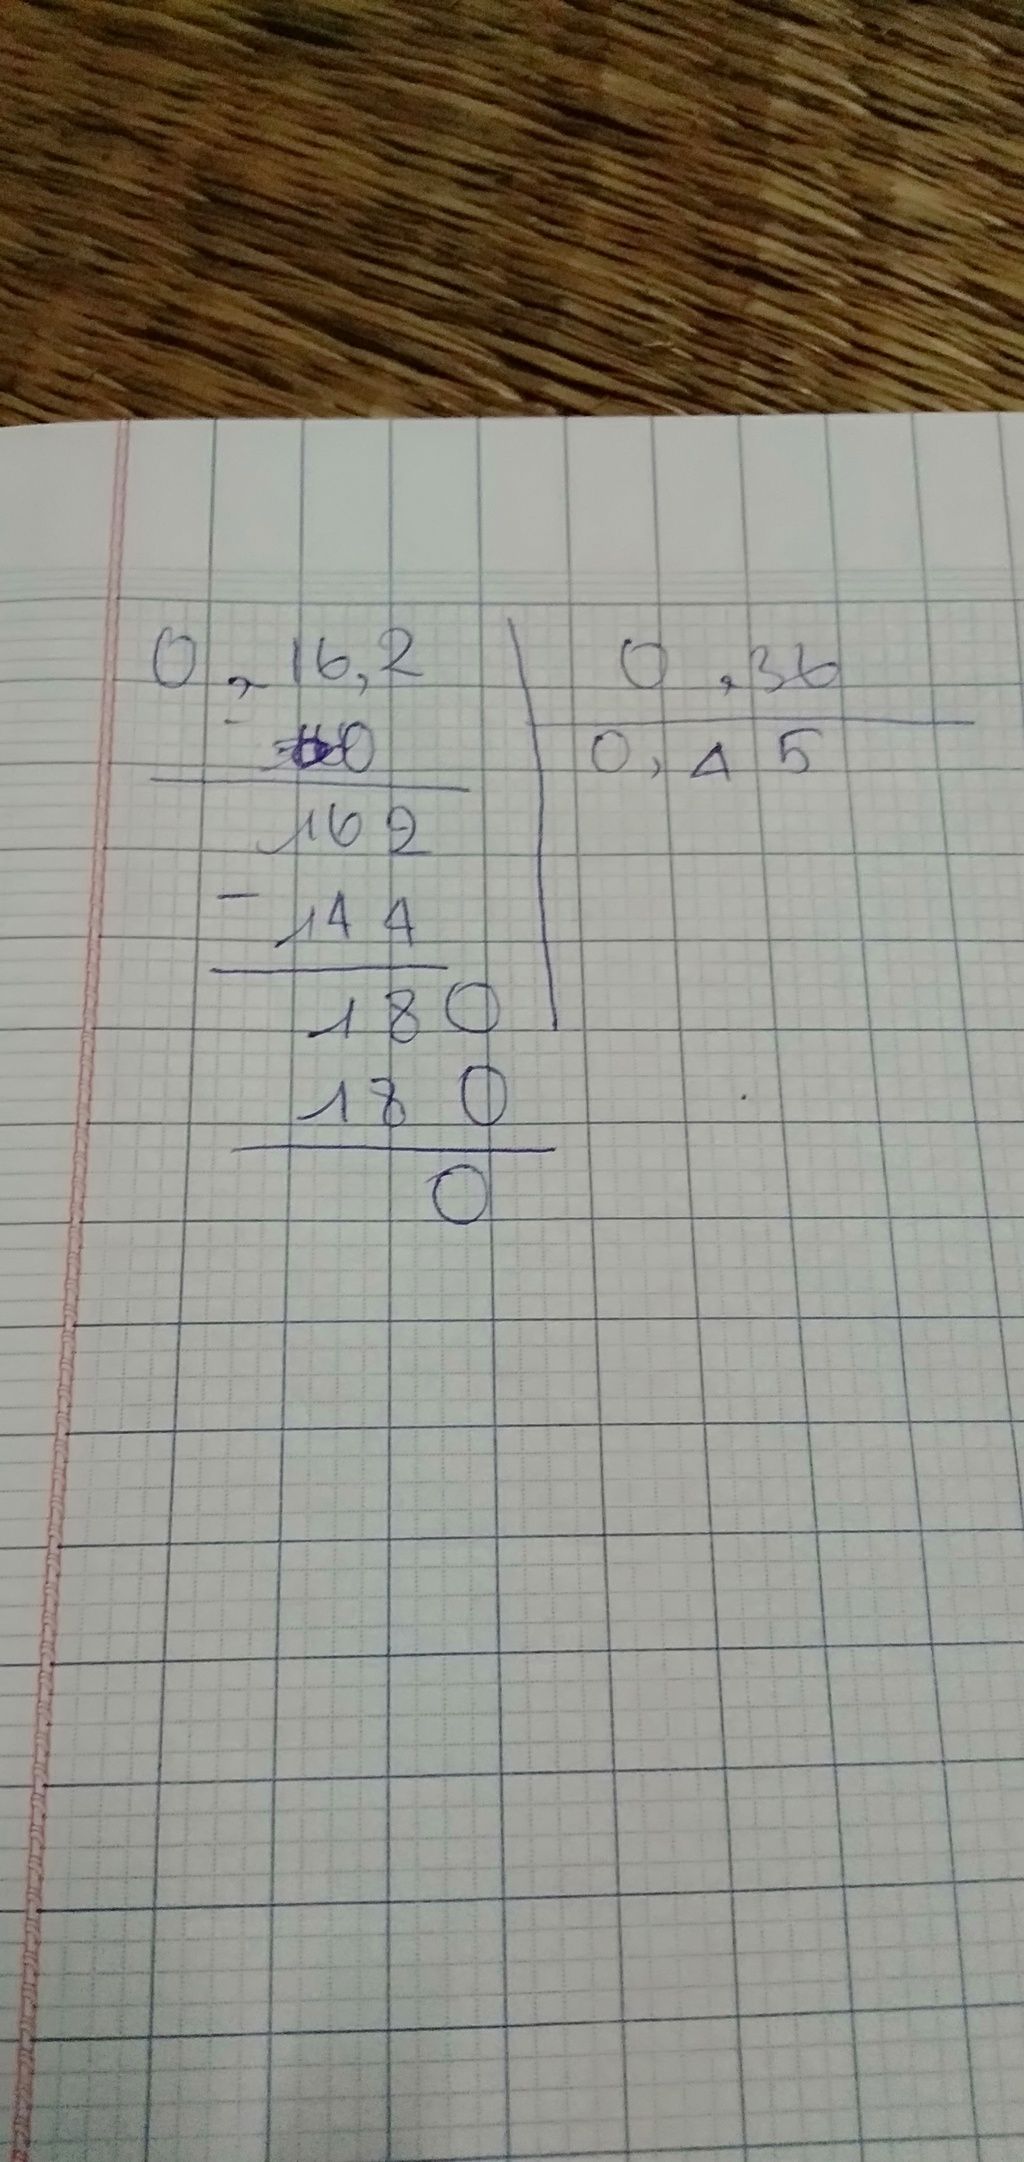 0,16,2 0,36
0 0,45
162
- 144
180
180
0